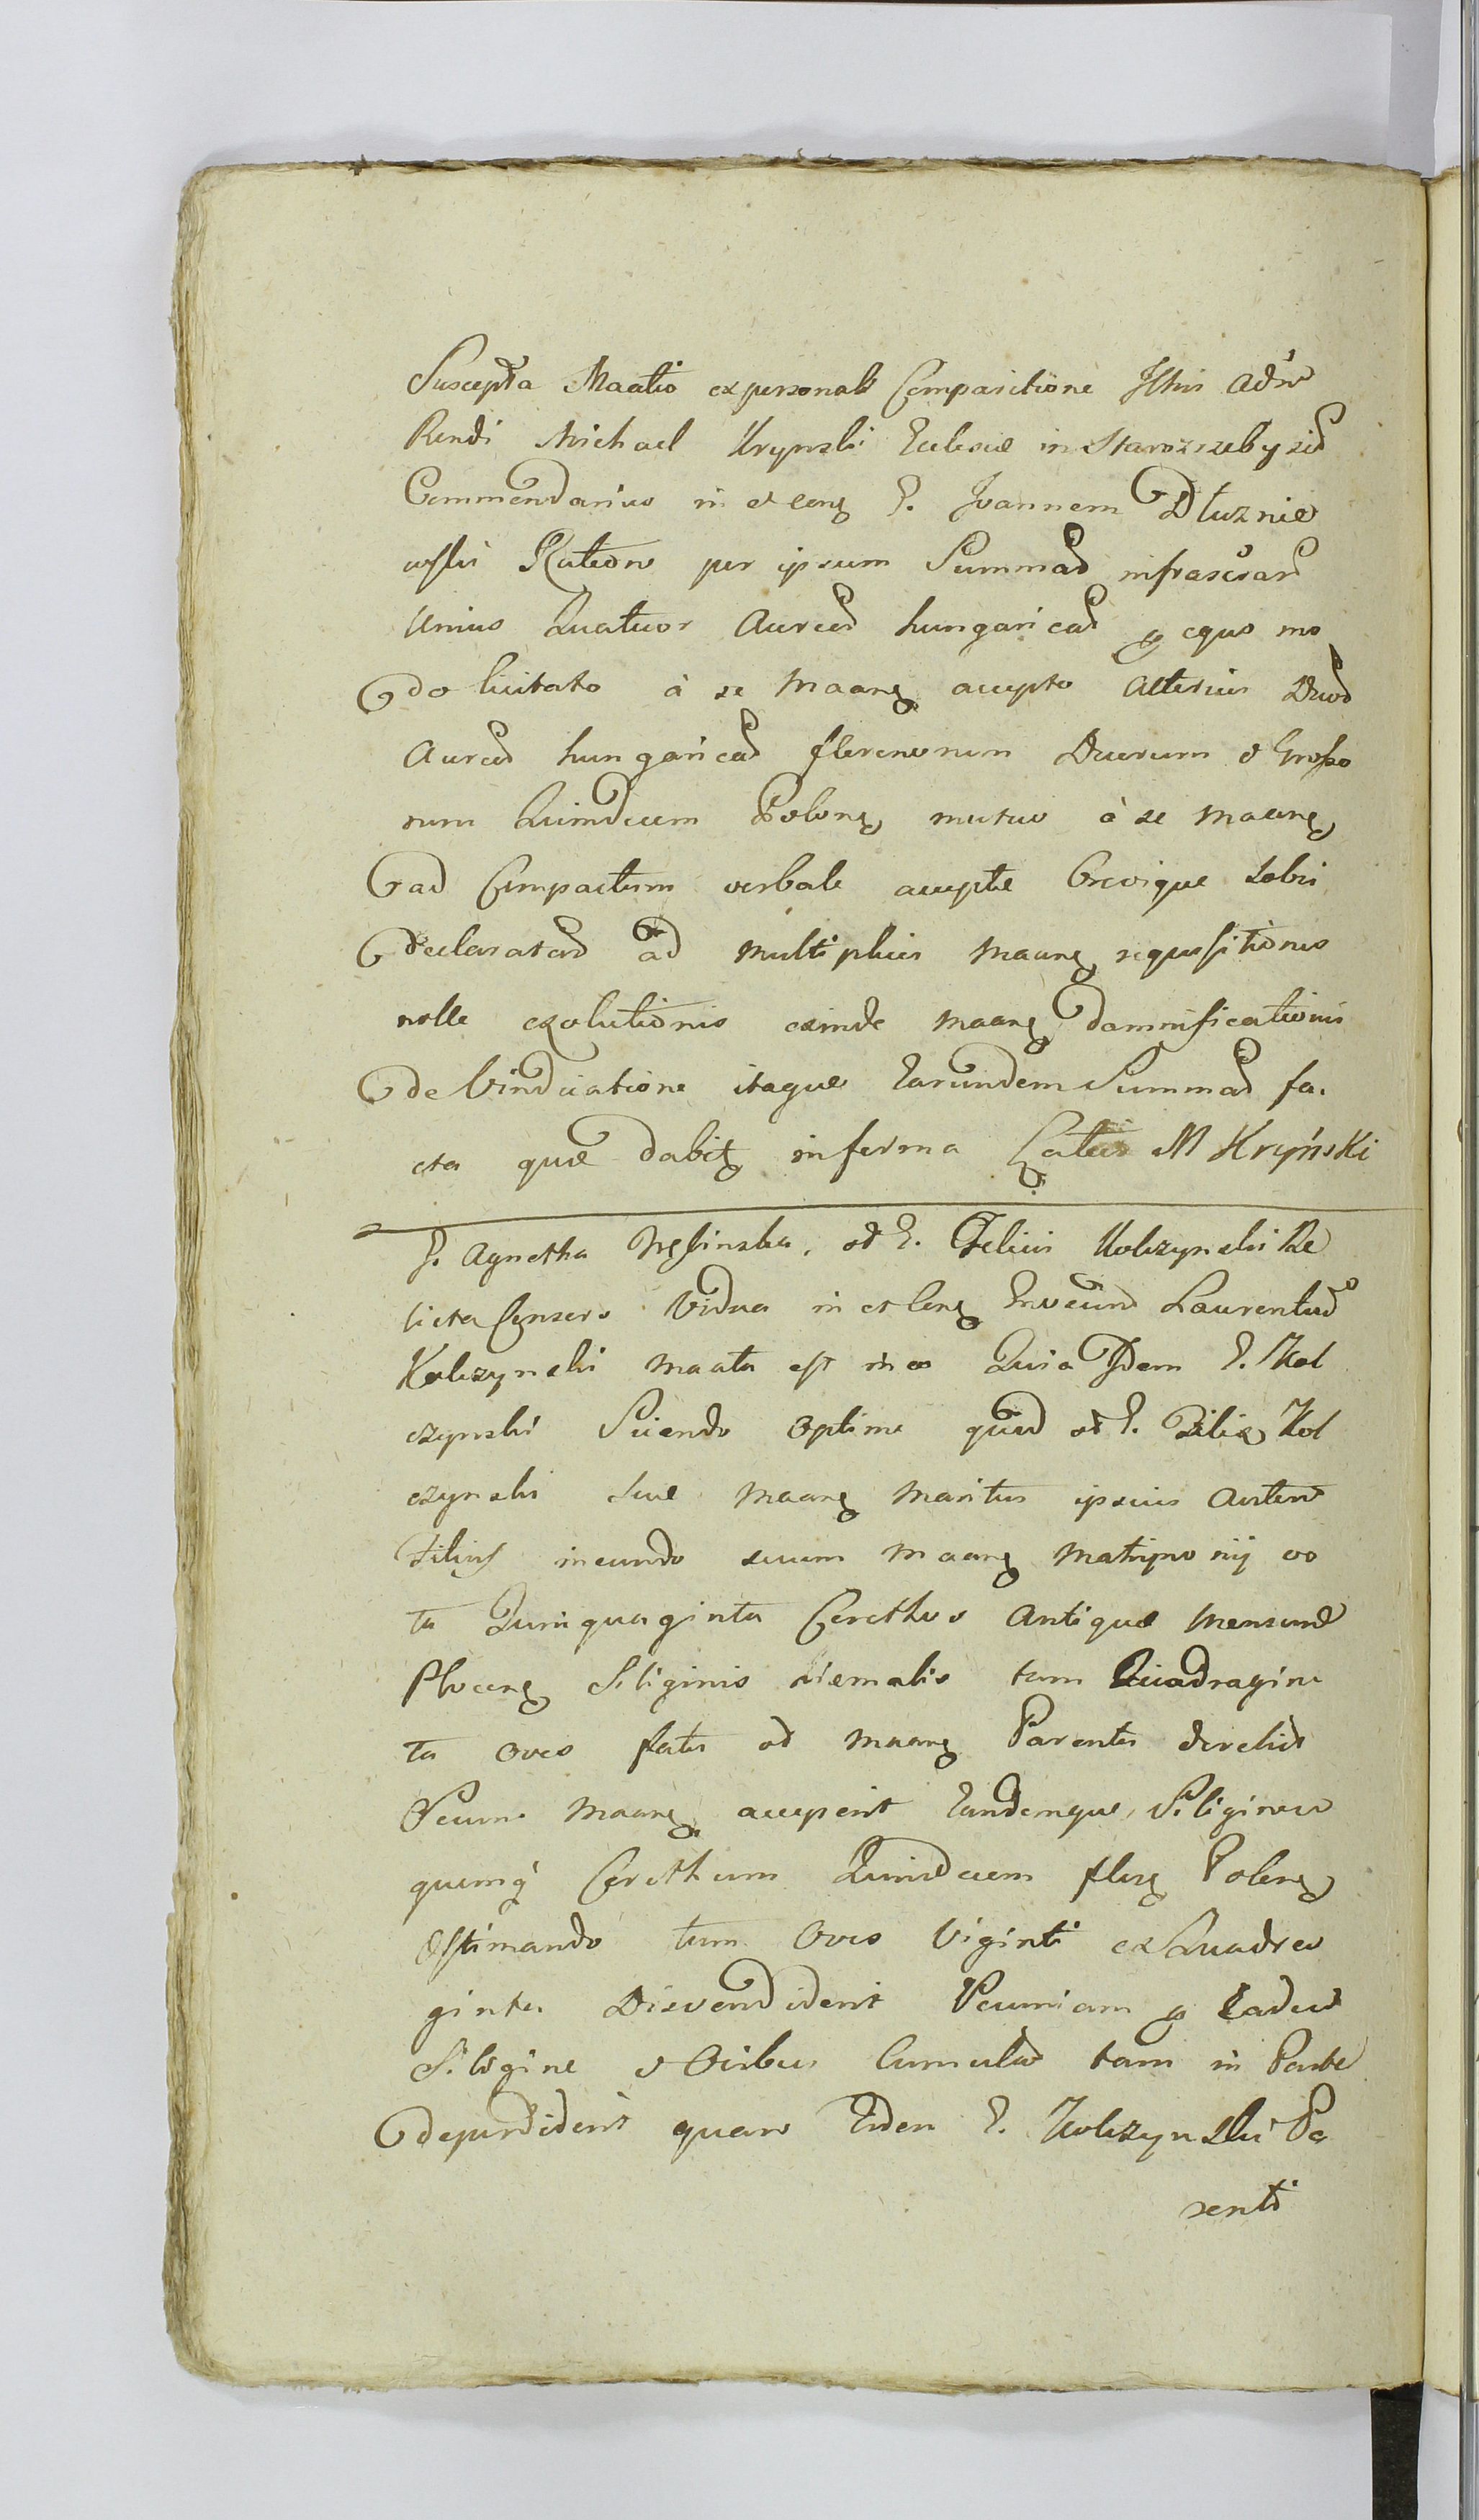 Suscepta Maatio ex personali Comparitione Illris Adm
Rendi Michael Krynski Ecclesiae in Starozrzebyzid
Commendarius in et cong G. Joannem Dłuznie
wski Ratione per ipsum Summad infrascrar
Unius Quatuor Aureod hungaricad p equo mo
do licitato à se Maang accepto Alterius Duod
Aureod hungaricad florenorum Duorum & Grosso
rum Quindecim Polong mutuo à se Maang
ad Compactum verbale acceptae brevique solvi
declaratad ad multiplicis Maang requisitionis
nolle exolutionis exinde Maang damnificationis
de Vindicatione itaque Earundem Summad fa.
cta quae dabitg in forma Latius M Kryński
G. Agnetha olim G. Felicis Kolczynski Re
licta Consors Vidua in et cong Laurentium
Kolczynski Maata est in eo Quia Idem G. Kol
czynski Sciendo optime quod ol G. Filia Kol
czynski suae Maang Maritus ipsius Autem
Filius ineundo suum Maang Matrimonij vo
ta Quinquaginta Corethos Antiquae Mensurae
Ploceng Siliginis hiemalis tum Quadragin
ta oves fatis ol Maang Parentis derelict
Secum Maang acceperit Eandemque Siliginem
quemq Corethum Quindecim flor Polong
Estimando tum Oves Viginti ex Quadra
ginta Disvendiderit Pecuniam p Eadem
Siligine & Ovibus Cumulat tam in Parte
deperdiderit quam Eidem G. Kolczynski Pa
renti